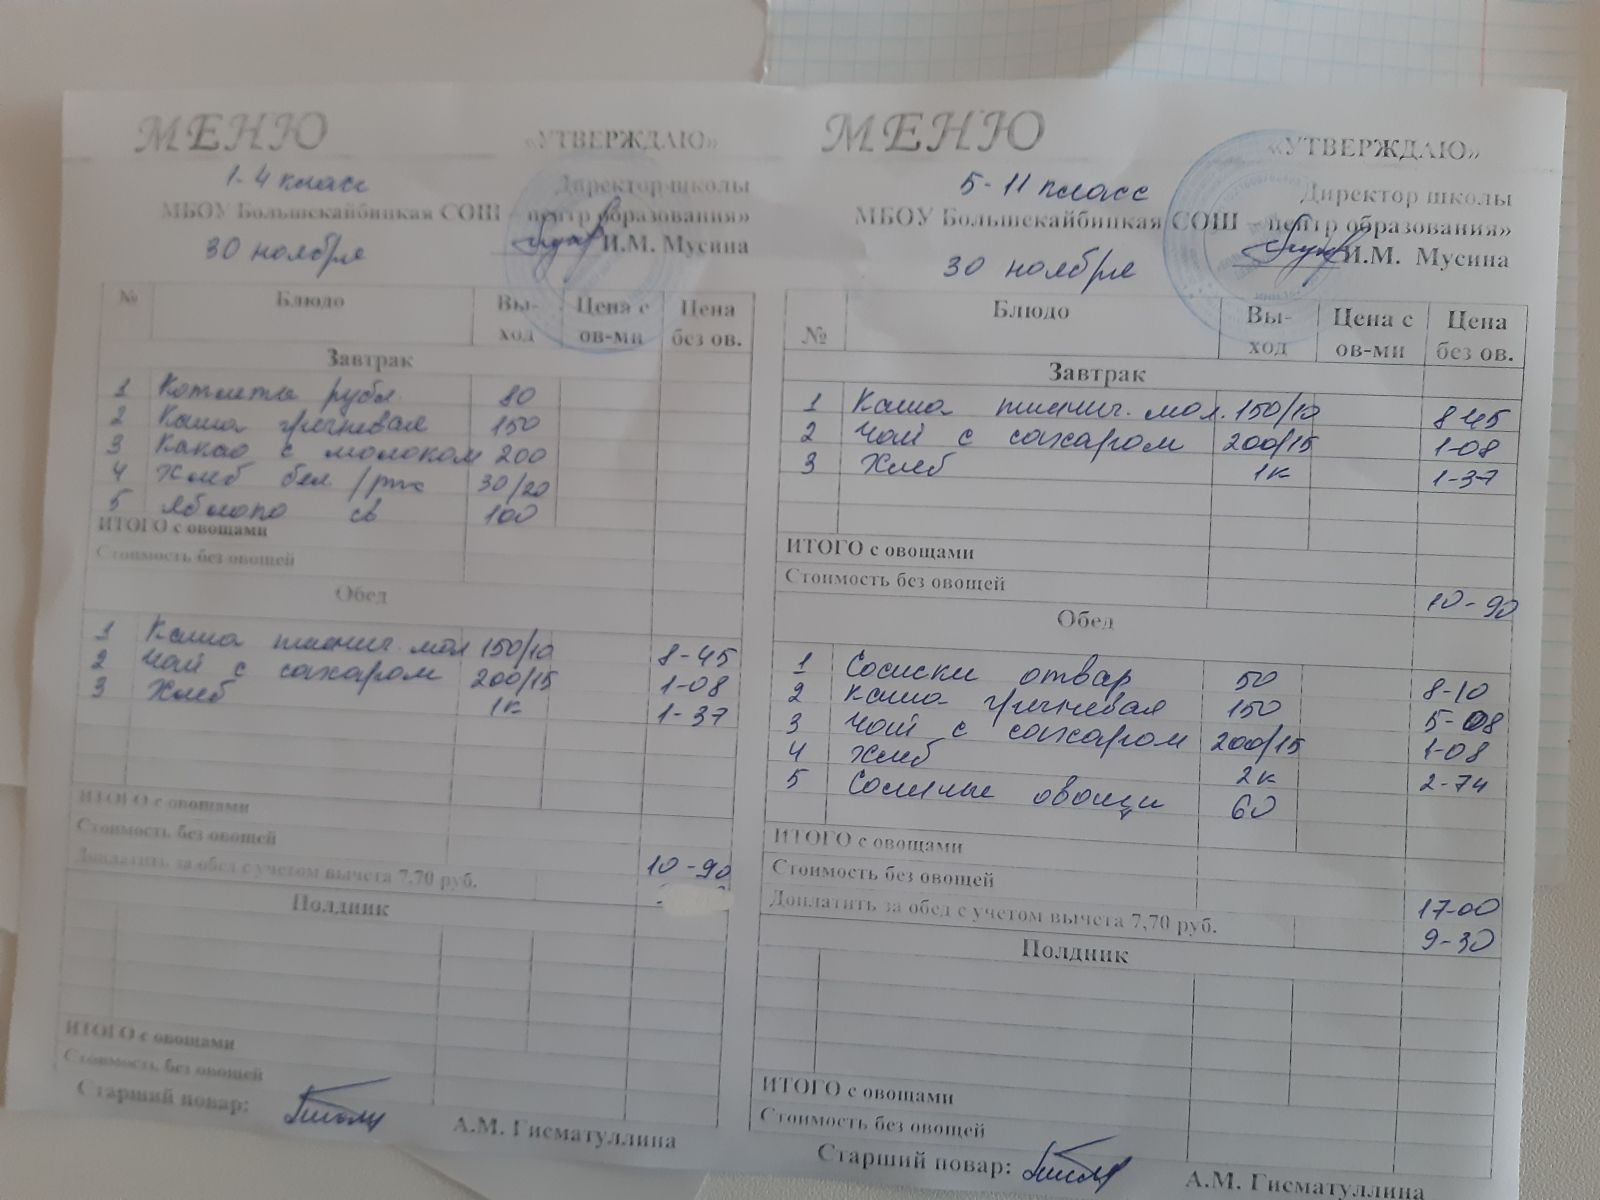 МЕНЮ
«УТВЕРЖДАЮ»
1-4 класс
Директор школы
МБОУ Большекайбицкая СОШ – центр образования»
30 ноября
И.М. Мусина
№ Блюдо Вы-ход Цена с ов-ми Цена без ов.
Завтрак
1 Котлета рубл. 80
2 Каша гречневая 150
3 Какао с молоком 200
4 Хлеб бел./рж 30/20
5 Яблоко св 100
ИТОГО с овощами
Стоимость без овощей
Обед
1 Каша пшенич. мол 150/10 8-45
2 Чай с сахаром 200/15 1-08
3 Хлеб 1к 1-37
ИТОГО с овощами
Стоимость без овощей 10-90
Доплатить за обед с учетом вычета 7,70 руб.
Полдник
ИТОГО с овощами
Стоимость без овощей
Старший повар: А.М. Гисматуллина
МЕНЮ
«УТВЕРЖДАЮ»
5-11 класс
Директор школы
МБОУ Большекайбицкая СОШ – центр образования»
30 ноября
И.М. Мусина
№ Блюдо Вы-ход Цена с ов-ми Цена без ов.
Завтрак
1 Каша пшенич. мол. 150/10 8-45
2 Чай с сахаром 200/15 1-08
3 Хлеб 1к 1-37
ИТОГО с овощами
Стоимость без овощей 10-90
Обед
1 Сосиски отвар 50 8-10
2 Каша гречневая 150 5-08
3 Чай с сахаром 200/15 1-08
4 Хлеб 2к 2-74
5 Соленые овощи 60
ИТОГО с овощами
Стоимость без овощей 17-00
Доплатить за обед с учетом вычета 7,70 руб. 9-30
Полдник
ИТОГО с овощами
Стоимость без овощей
Старший повар: А.М. Гисматуллина